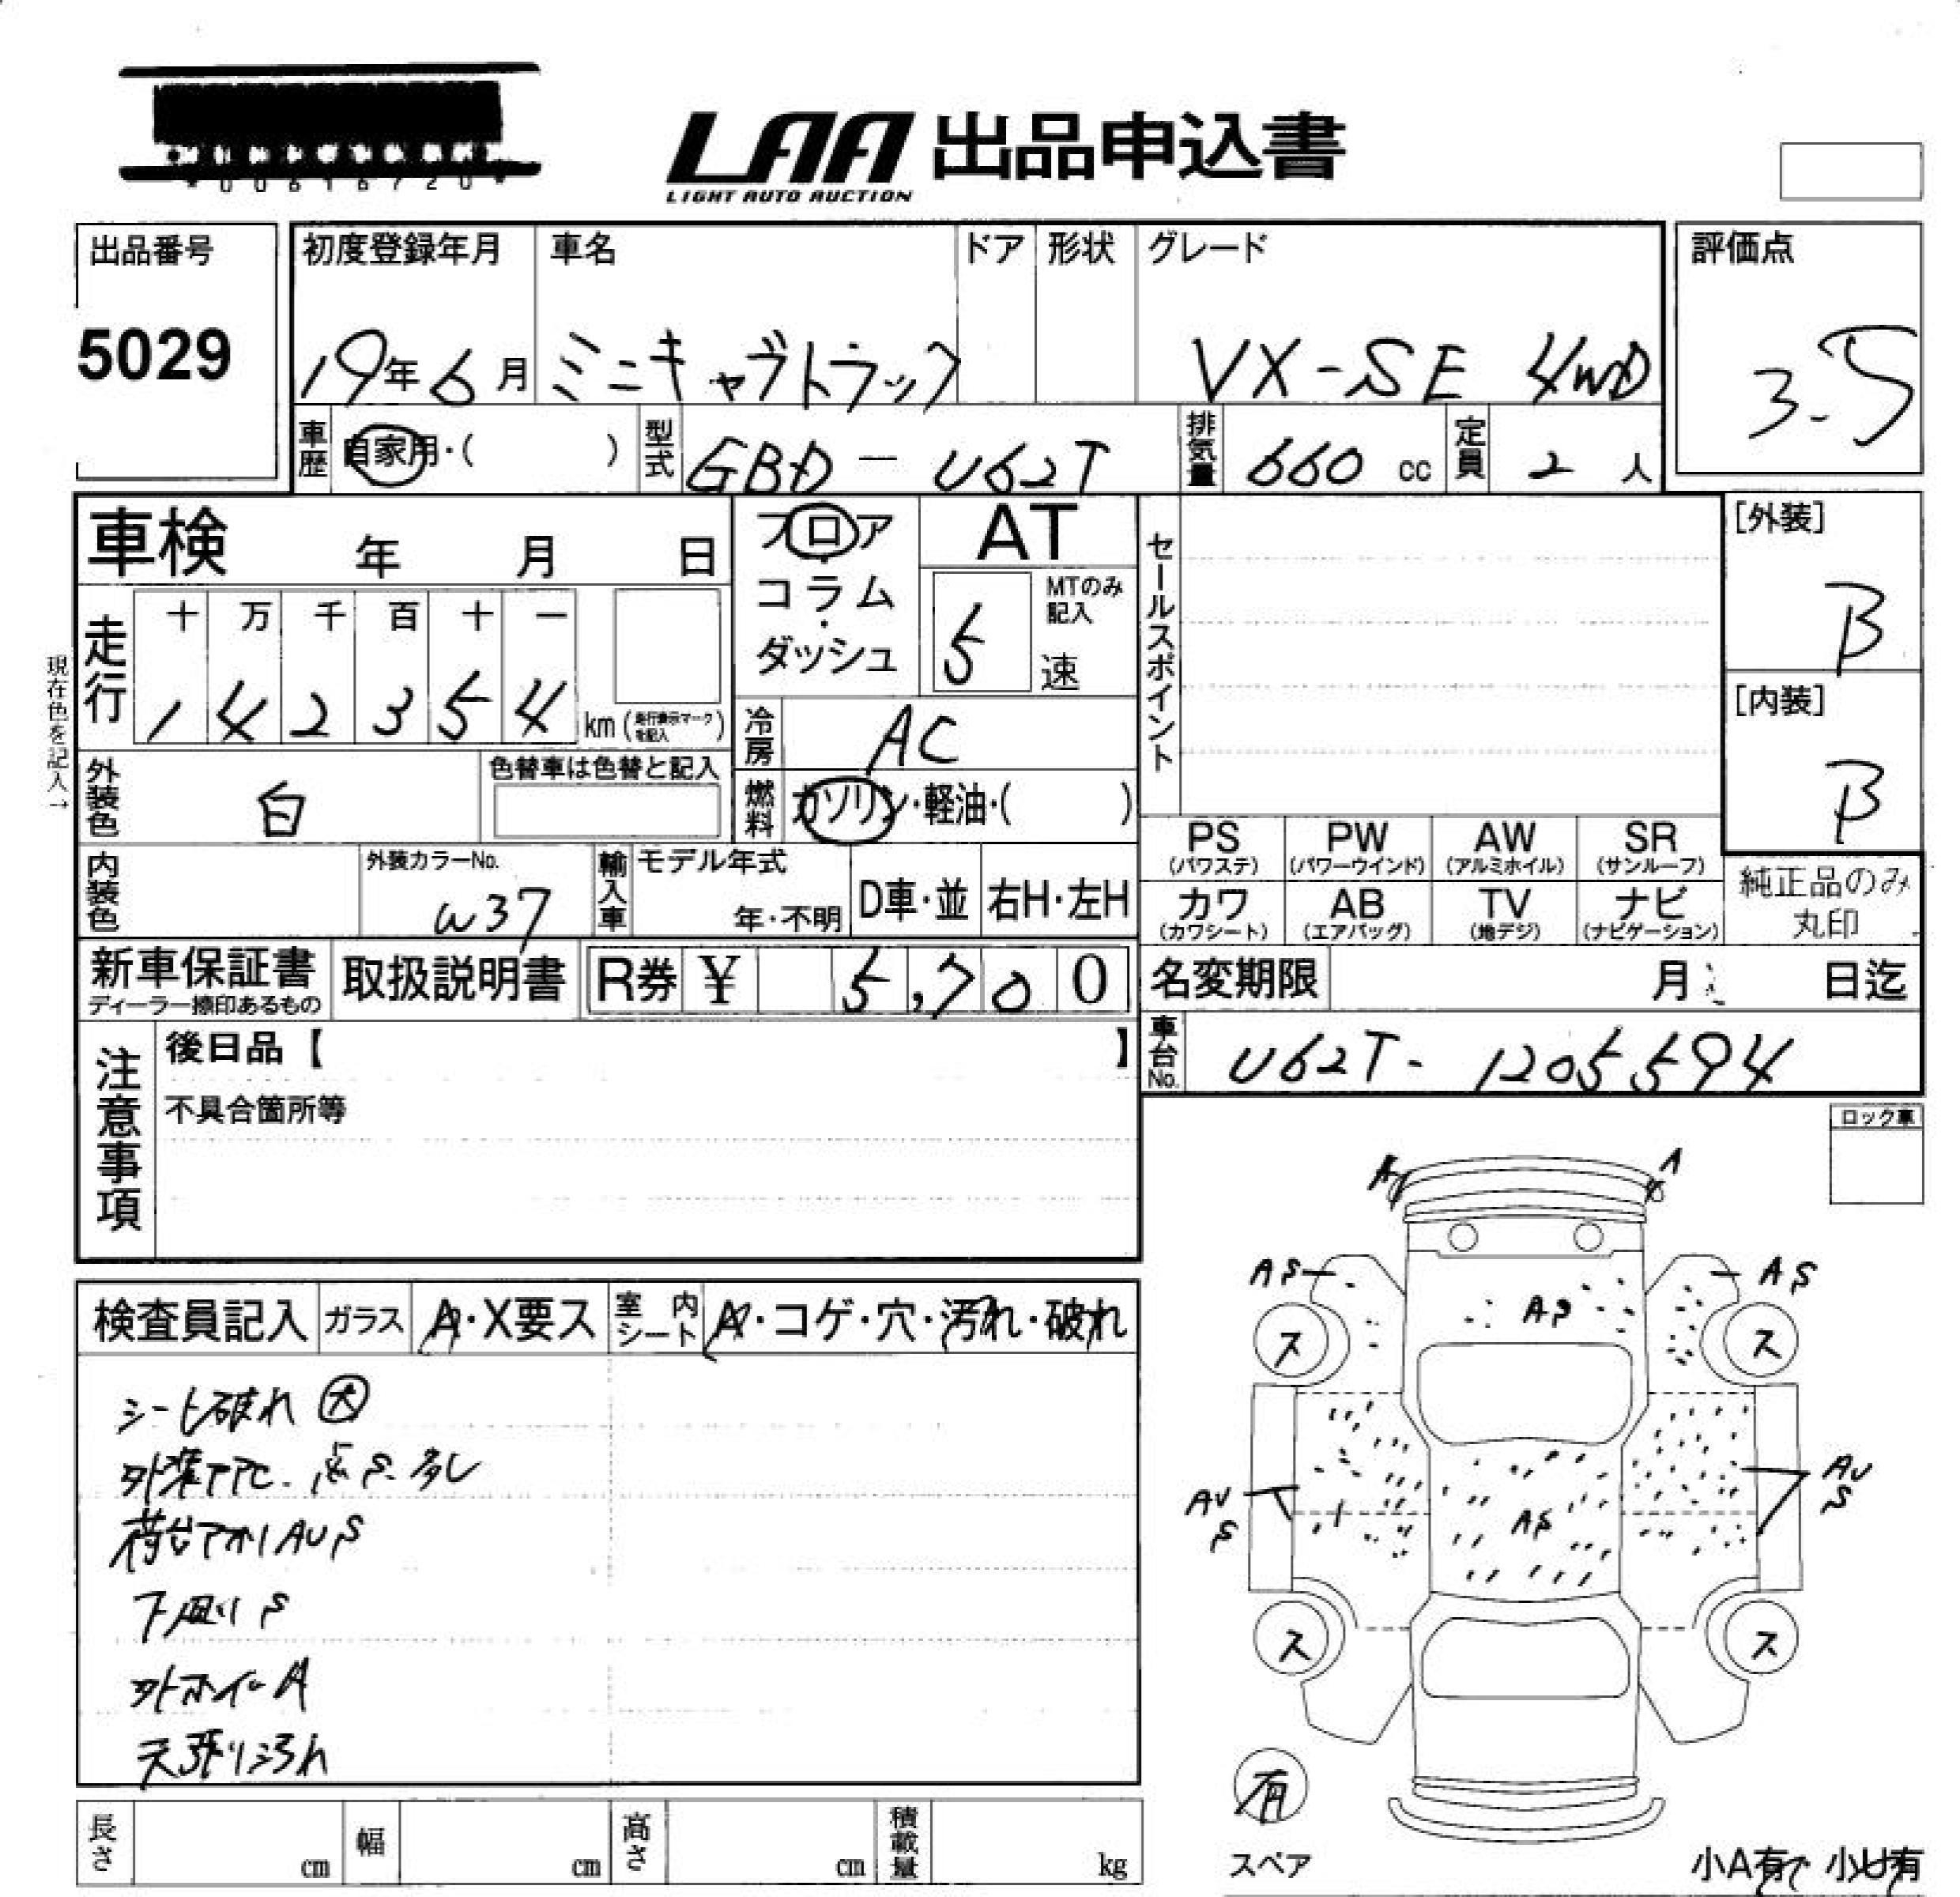 LAA 出品申込書
LIGHT AUTO AUCTION
出品番号
5029
初度登録年月
19年6月
車名
ミニキャブトラック
ドア
形状
グレード
VX-SE 4WD
評価点
3.5
車歴
自家用・( )
型式
GBD-U62T
排気量
660 cc
定員
2 人
車検 年 月 日
フロア・コラム・ダッシュ
AT
MTのみ記入
5 速
セールスポイント
[外装]
B
[内装]
B
現在色を記入→
走行
十 万 千 百 十 一
1 4 2 3 5 4 km (走行表示マークを記入)
冷房
AC
外装色
白
色替車は色替と記入
燃料
ガソリン・軽油・( )
PS (パワステ)
PW (パワーウインド)
AW (アルミホイル)
SR (サンルーフ)
カワ (カワシート)
AB (エアバッグ)
TV (地デジ)
ナビ (ナビゲーション)
純正品のみ
丸印
内装色
外装カラーNo.
W37
輸入車
モデル年式
年・不明
D車・並
右H・左H
新車保証書
ディーラー捺印あるもの
取扱説明書
R券 ¥ 5,700
名変期限 月 日迄
車台No.
U62T-1205594
注意事項
後日品【 】
不具合箇所等
ロック車
検査員記入
ガラス
A・X要ス
室内シート
A・コゲ・穴・汚れ・破れ
シート破れ 大
外装 点S多し
荷台アオリAUS
下廻りS
外ホイールA
天張り汚れ
A
A
AS
AS
AS
ス
ス
AU
S
AS
AU
S
ス
ス
有
スペア
小A有 小U有
長さ cm
幅 cm
高さ cm
積載量 kg